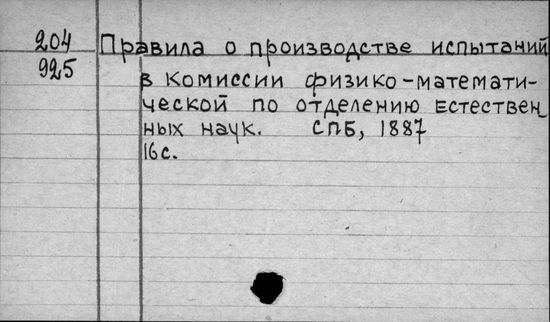 204 Правила о производстве испытаний
925 в комиссии физико-математи-
ческой по отделению естествен_
ных наук. СПБ, 1887
16с.